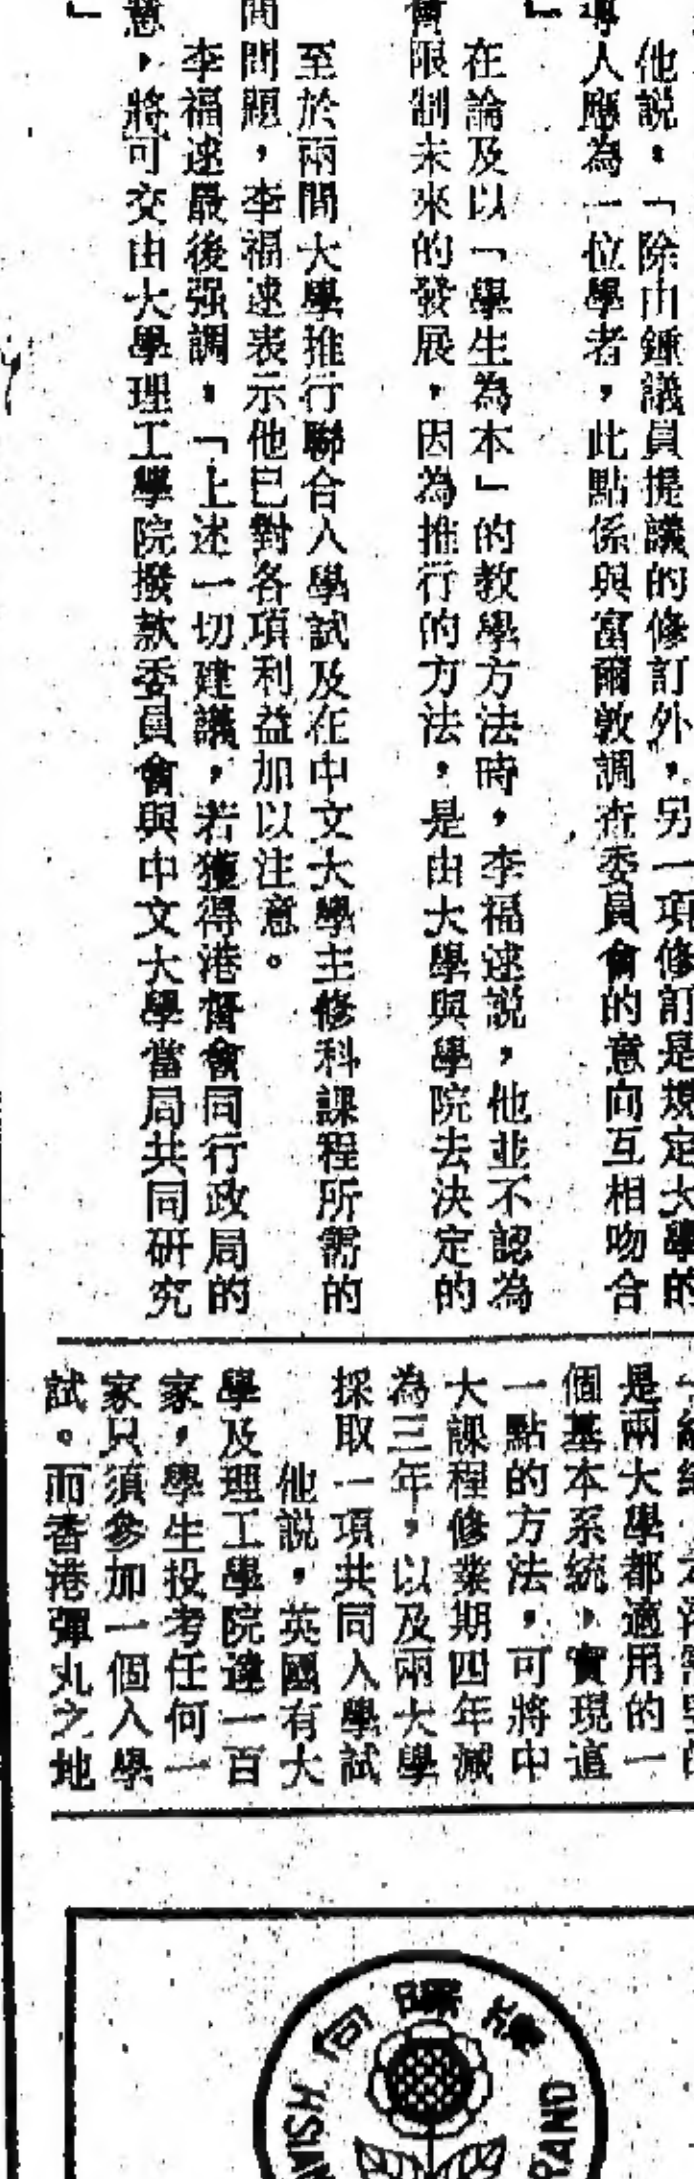 他說:「除由鍾議員提議的修訂外,另一項修訂是規定大學的
導人應為一位學者,此點係與富爾敦調查委員會的意向互相吻合
」
在論及以「學生為本」的教學方法時,李福逑說,他並不認為
會限制未來的發展,因為推行的方法,是由大學與學院去決定的
至於兩間大學推行聯合入學試及在中文大學主修科課程所需的
間問題,李福逑表示他已對各項利益加以注意。
李福逑最後强調:「上述一切建議,若獲得港督會同行政局的
意,將可交由大學理工學院撥款委員會與中文大學當局共同研究
」
是兩大學都適用的一
個基本系統,實現這
一點的方法,可將中
大課程修業期四年減
為三年,以及兩大學
採取一項共同入學試
他說,英國有大
學及理工學院達一百
家,學生投考任何一
家只須參加一個入學
試。而香港彈丸之地
向陽
BRAND